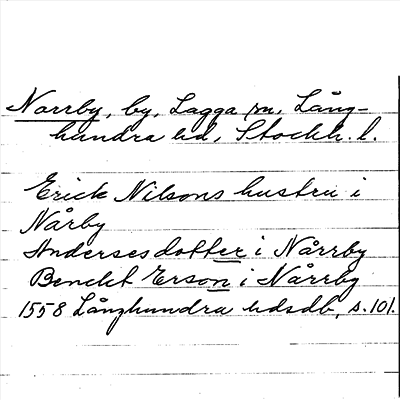 Norrby, by, Lagga sn, Lång-
hundra hd, Stockh. l.
Erick Nilsons hustru i
Nårby
Andersesdotter i Nårrby
Benckt Erson i Nårrby
1558 Långhundra hdsdb, s. 101.